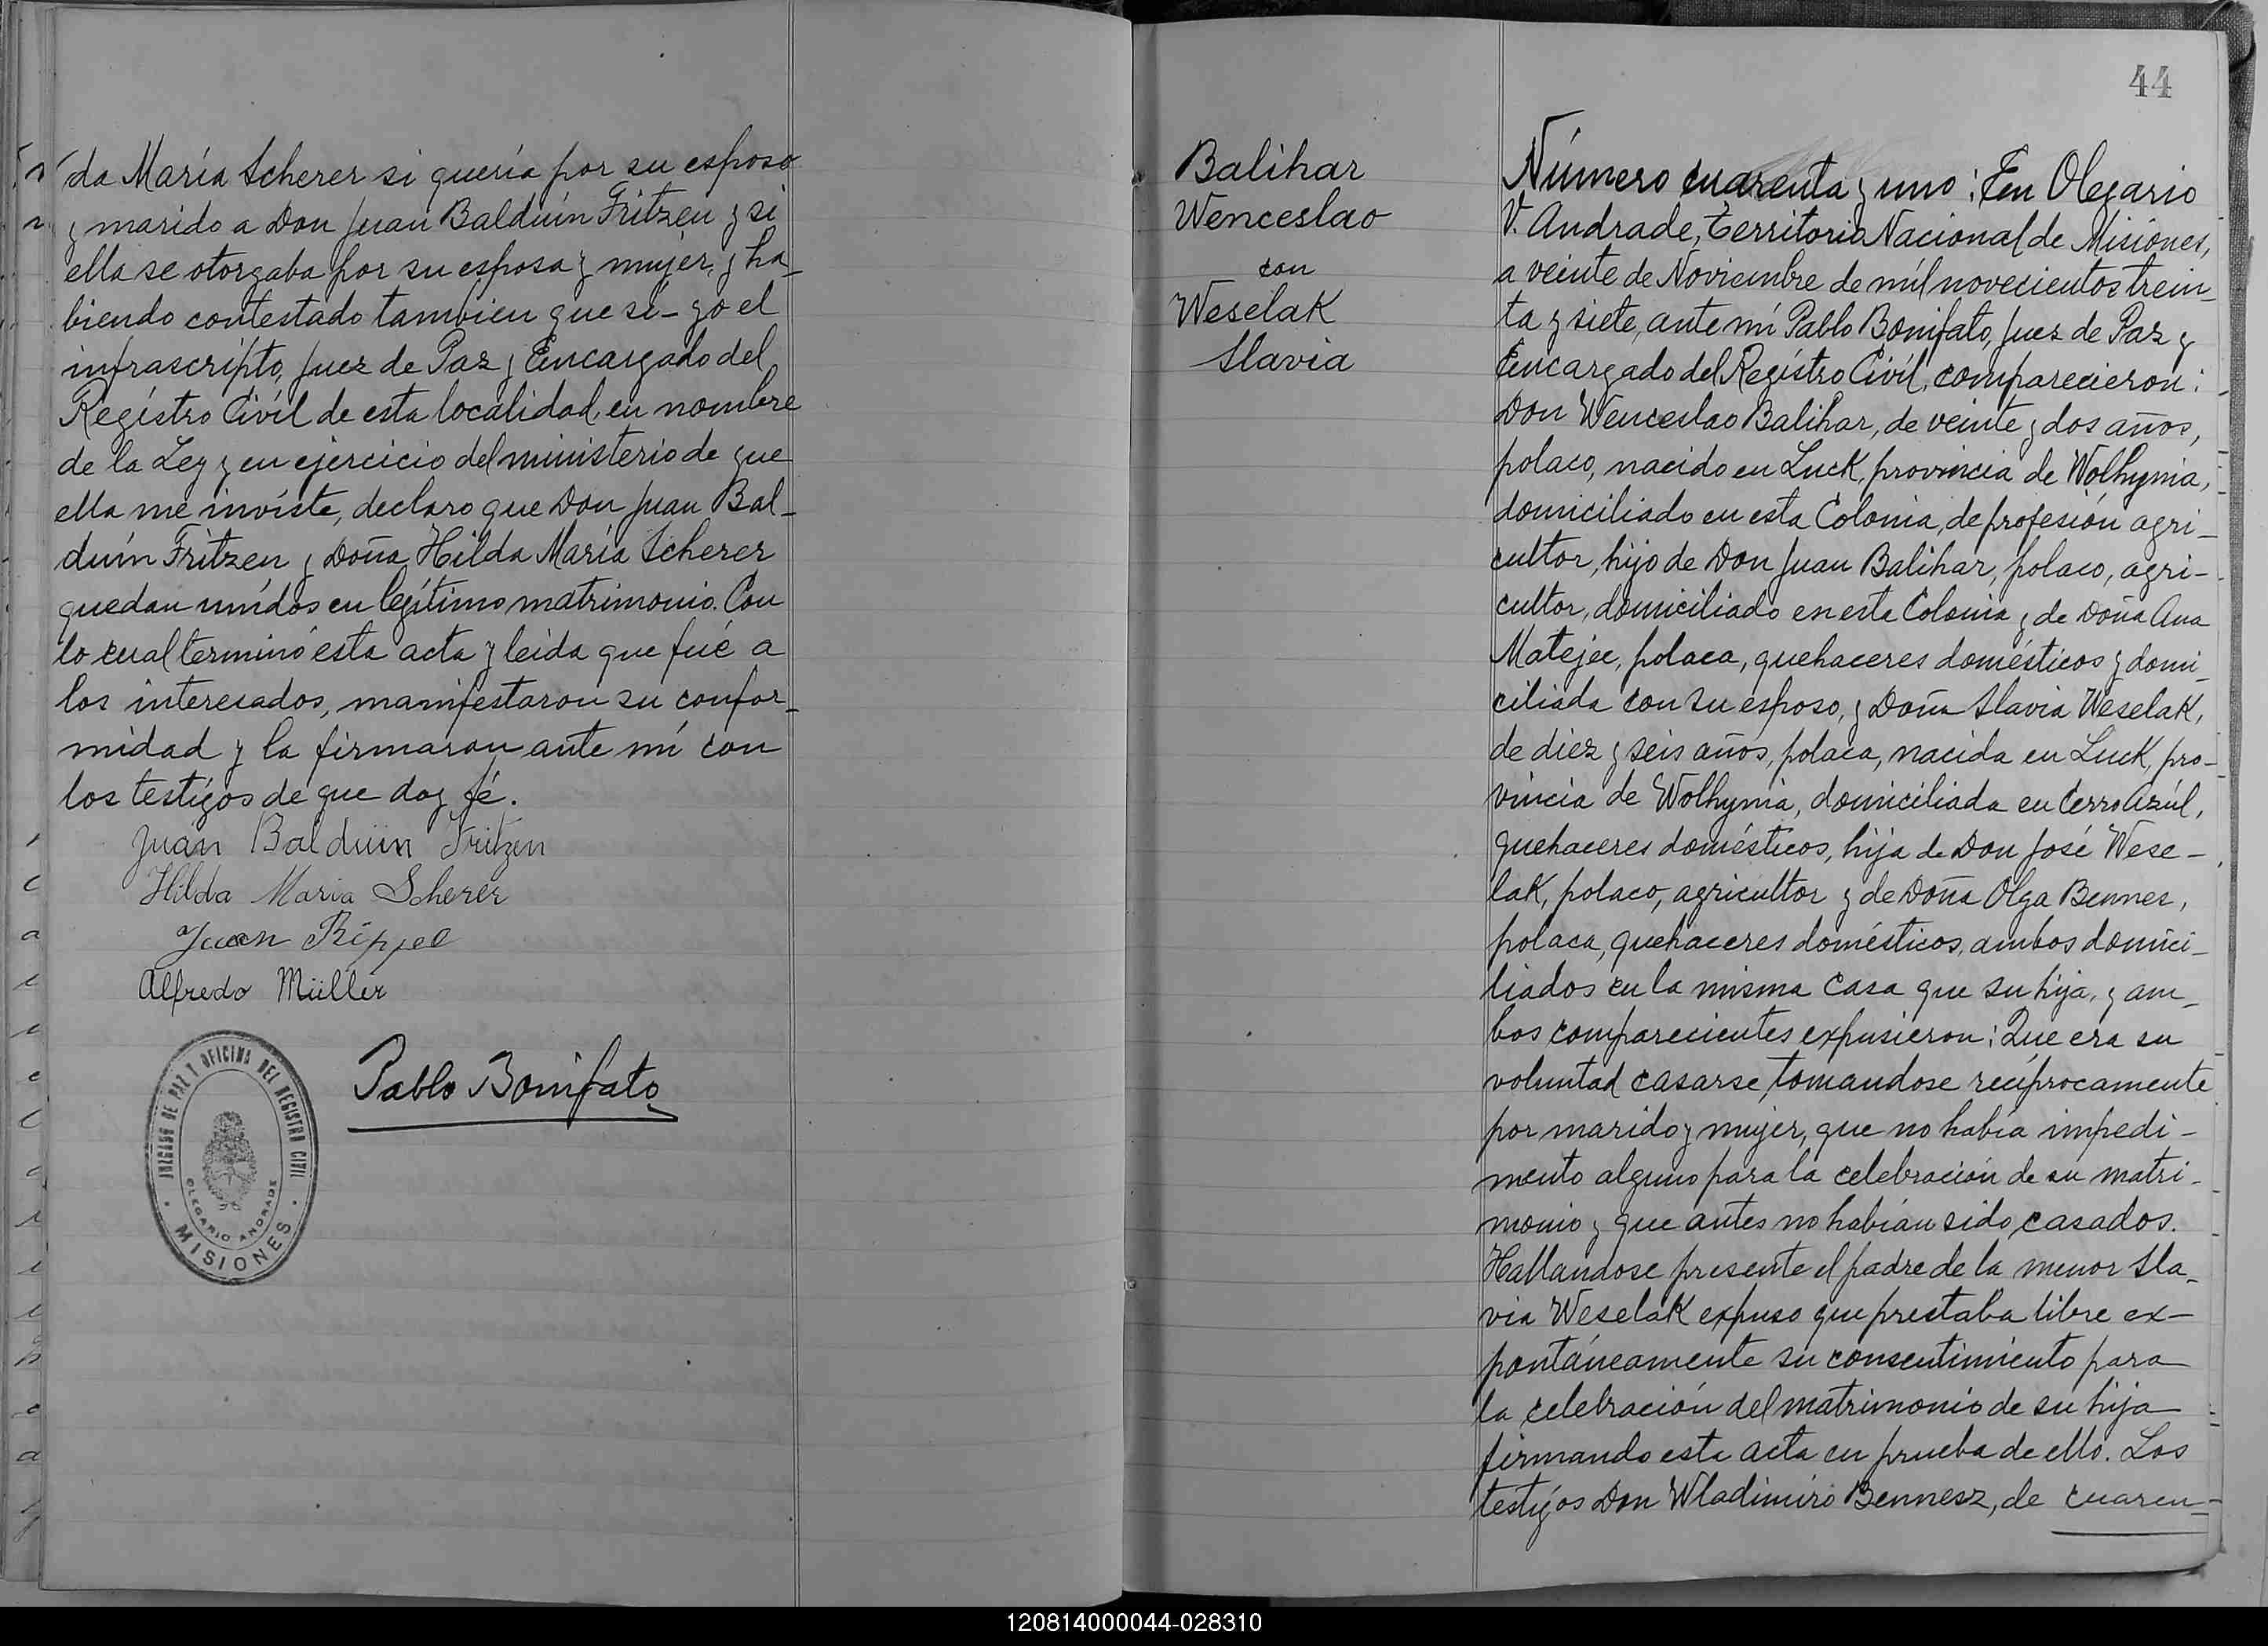 da María Scherer si quería por su esposo
y marido a Don Juan Balduín Fritzen y si
ella se otorgaba por su esposa y mujer, y ha-
biendo contestado tambien que sí - yo el
infrascripto, Juez de Paz y Encargado del
Registro Civil de esta localidad, en nombre
de la Ley y en ejercicio del ministerio de que
ella me inviste, declaro que Don Juan Bal-
duín Fritzen y Doña Hilda María Scherer
quedan unidos en legítimo matrimonio. Con
lo cual terminó esta acta y leida que fué a
los interesados, manifestaron su confor-
midad y la firmaron ante mí con
los testigos de que doy fé.
Juan Balduin Fritzen
Hilda Maria Scherer
Juan Rippel
Alfredo Müller
Pablo Bonifato
JUZGADO DE PAZ Y OFICINA DEL REGISTRO CIVIL
OLEGARIO ANDRADE
MISIONES
44
Balihar
Wenceslao
con
Weselak
Slavia
Número cuarenta y uno: En Olegario
V. Andrade, Territorio Nacional de Misiones,
a veinte de Noviembre de mil novecientos trein-
ta y siete, ante mí Pablo Bonifato, Juez de Paz y
Encargado del Registro Civil, comparecieron:
Don Wenceslao Balihar, de veinte y dos años,
polaco, nacido en Luck, provincia de Wolhynia,
domiciliado en esta Colonia, de profesión agri-
cultor, hijo de Don Juan Balihar, polaco, agri-
cultor, domiciliado en esta Colonia y de Doña Ana
Matejec, polaca, quehaceres domésticos y domi-
ciliada con su esposo, y Doña Slavia Weselak,
de diez y seis años, polaca, nacida en Luck, pro-
vincia de Wolhynia, domiciliada en Cerro Azúl,
quehaceres domésticos, hija de Don José Wese-
lak, polaco, agricultor y de Doña Olga Bennes,
polaca, quehaceres domésticos, ambos domici-
liados en la misma casa que su hija, y am-
bos comparecientes expusieron: Que era su
voluntad casarse, tomandose recíprocamente
por marido y mujer, que no había impedi-
mento alguno para la celebración de su matri-
monio y que antes no habían sido casados.
Hallandose presente el padre de la menor Sla-
via Weselak expuso que prestaba libre ex-
pontáneamente su consentimiento para
la celebración del matrimonio de su hija
firmando esta acta en prueba de ello. Los
testigos Don Wladimiro Bennesz, de cuaren-
120814000044-028310